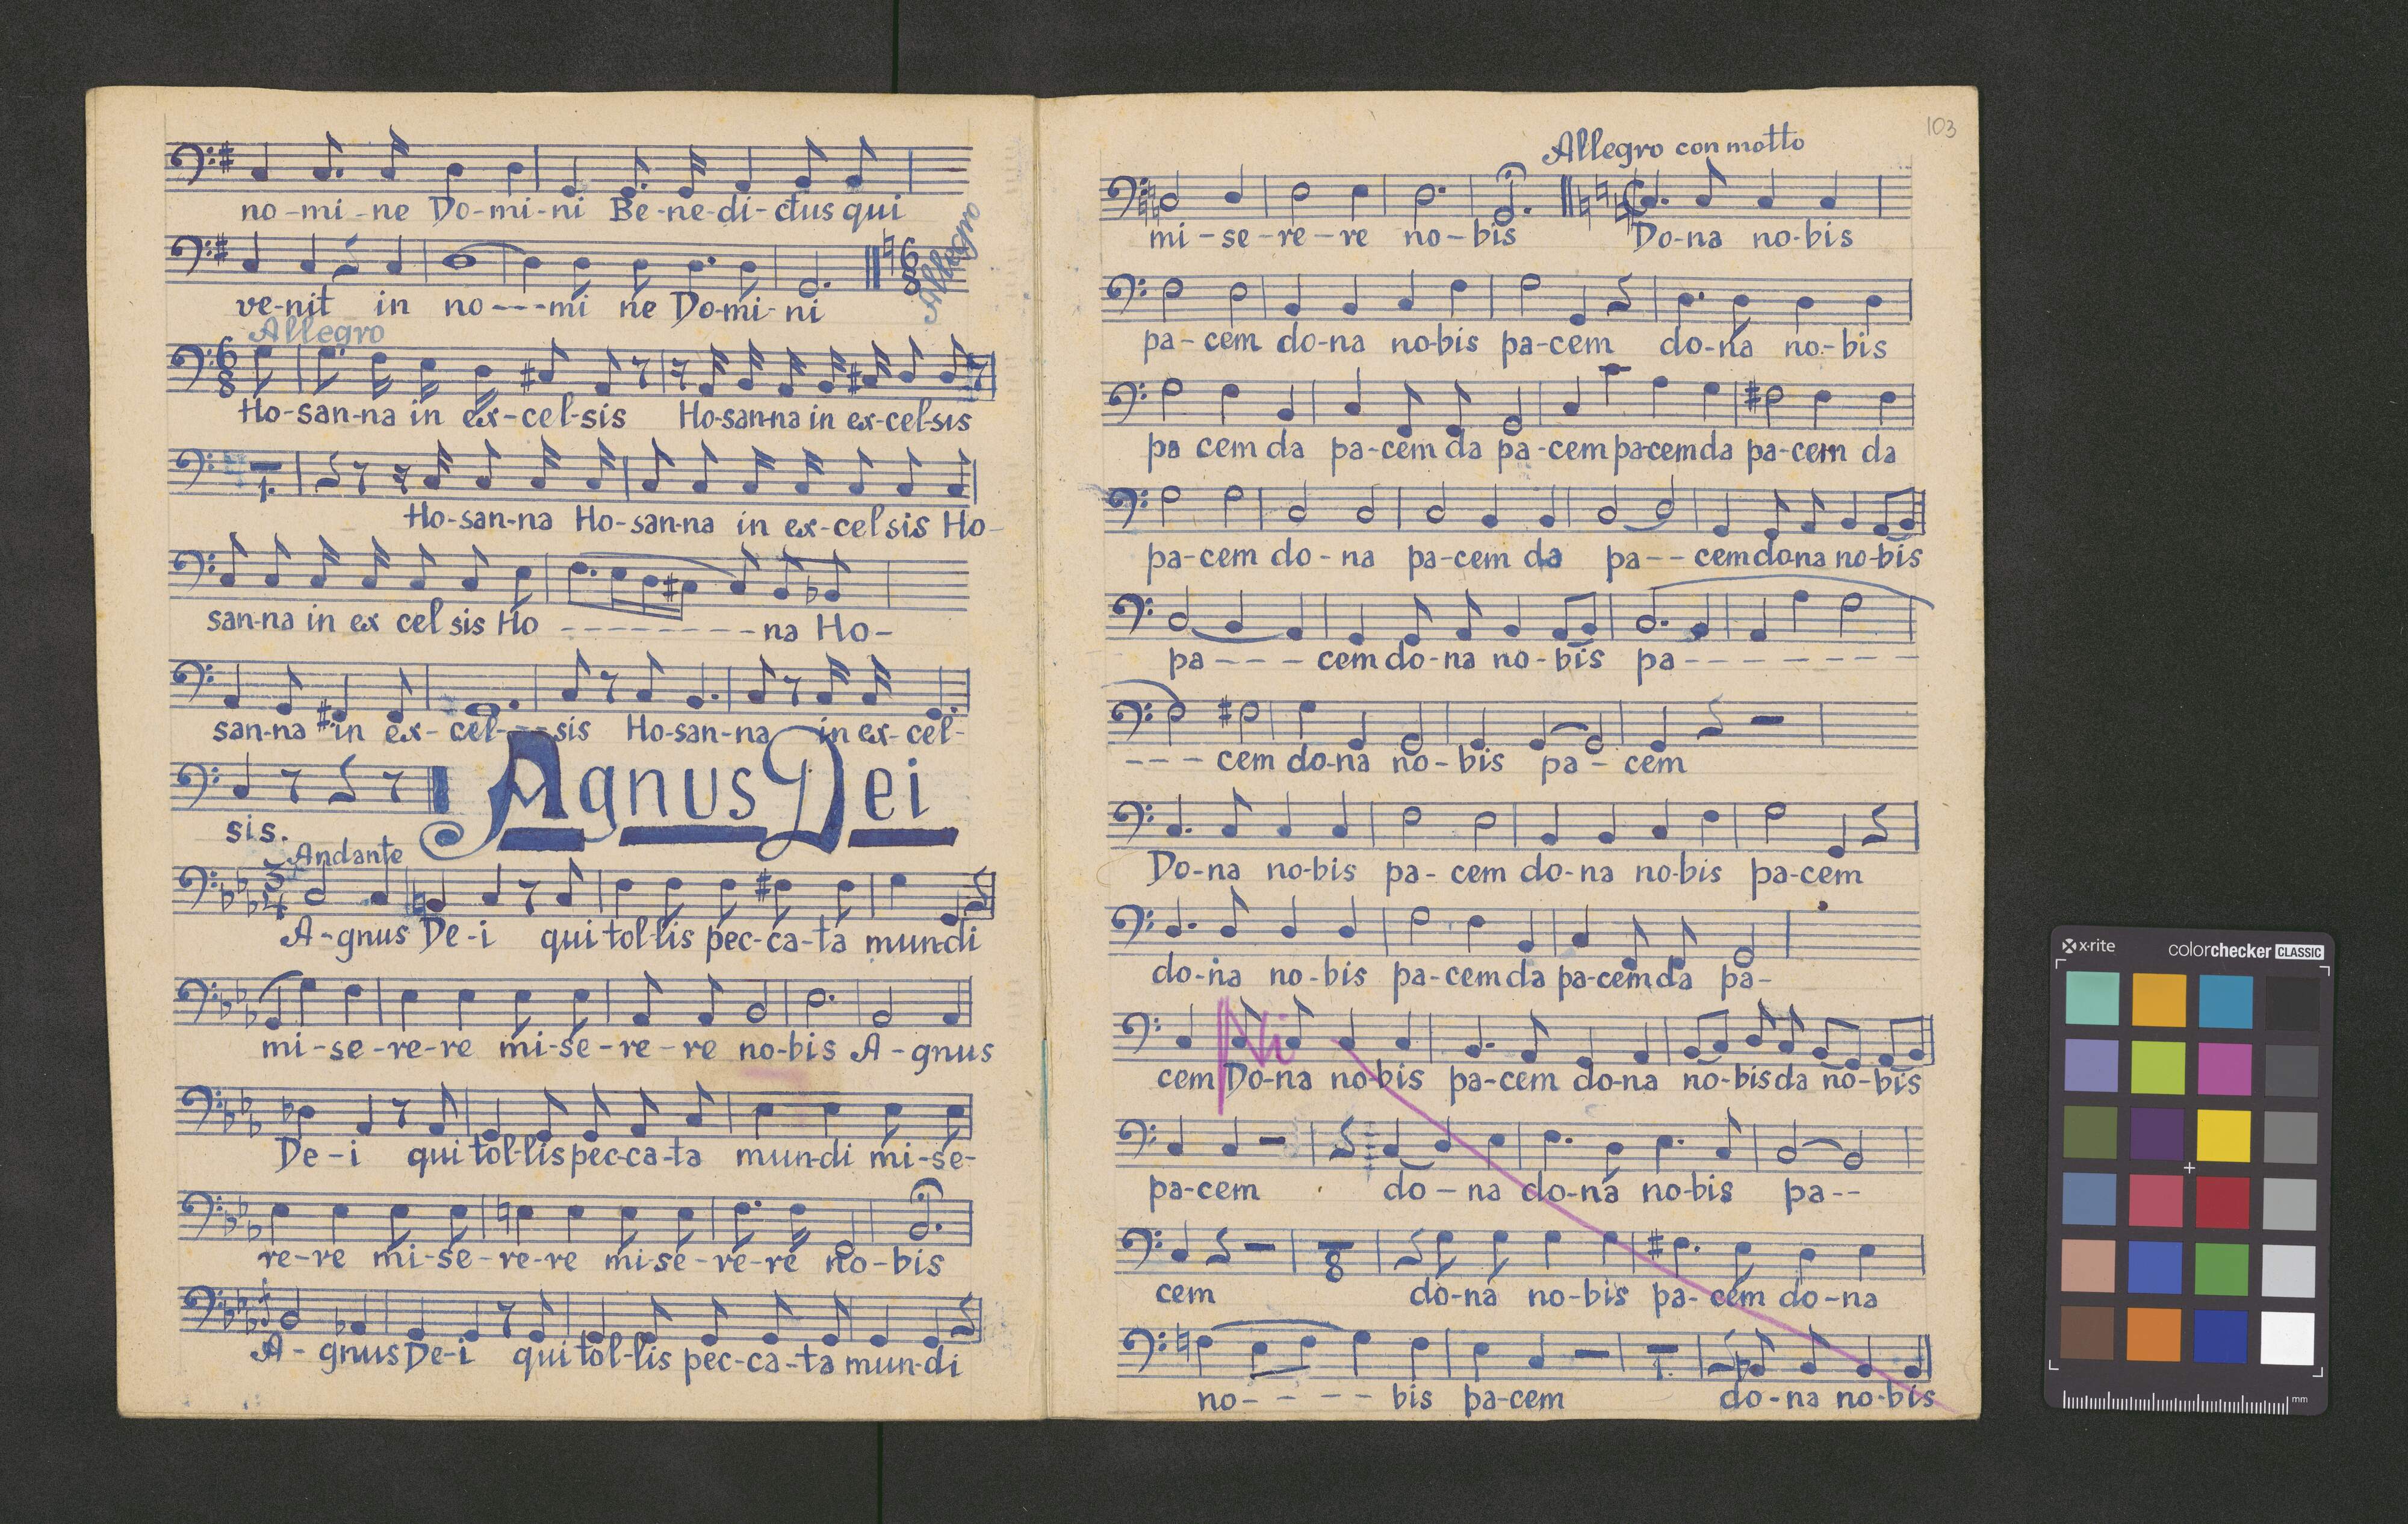 no-mi-ne Do-mi-ni Be-ne-di-ctus qui
Allegro
ve-nit in no---mi ne Do-mi-ni
Allegro
6
8
Ho-san-na in ex-cel-sis Ho-san-na in ex-cel-sis
1.
Ho-san-na Ho-san-na in ex-cel sis Ho-
san-na in ex cel sis Ho --------na Ho-
san-na in ex- cel---sis Ho-san-na in ex-cel-
Agnus Dei
sis.
Andante
3
4
A-gnus De-i qui tol-lis pec-ca-ta mun-di
mi-se-re-re mi-se-re-re no-bis A-gnus
De-i qui tol-lis pec-ca-ta mun-di mi-se-
re-re mi-se-re-re mi-se-re-re no-bis
A- gnus De-i qui tol-lis pec-ca-ta mun-di
103
Allegro con motto
mi-se-re-re no-bis Do-na no-bis
pa-cem do-na no-bis pa-cem do-na no-bis
pa cem da pa-cem da pa-cem pa-cem da pa-cem da
pa-cem do-na pa-cem da pa--cem do-na no-bis
pa---cem do-na no-bis pa-------
---cem do-na no-bis pa-cem
Do-na no-bis pa-cem do-na no-bis pa-cem
do-na no-bis pa-cem da pa-cem da pa-
cem Do-na no-bis pa-cem do-na no-bis da no-bis
pa-cem do-na do-na no-bis pa--
8
cem do-na no-bis pa-cem do-na
1.
no----bis pa-cem do-na no-bis
x-rite colorchecker CLASSIC
mm